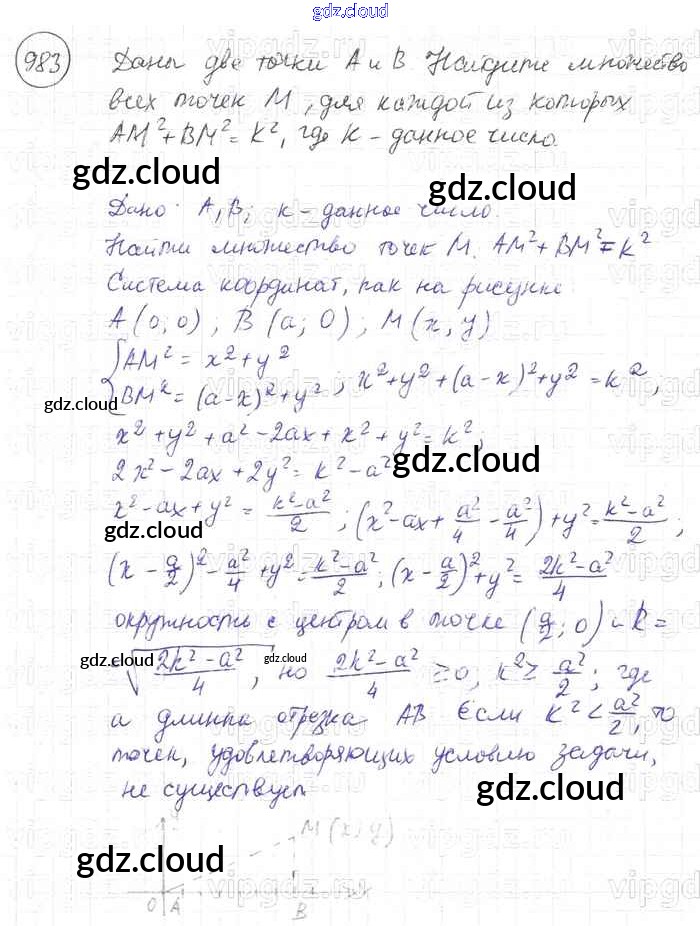 gdz.cloud
983 Даны две точки А и В. Найдите множество
всех точек М, для каждой из которых
AM² + BM² = k², где k – данное число.
gdz.cloud
gdz.cloud
Дано: А, В; k – данное число.
Найти множество точек М. AM² + BM² = k²
Система координат, как на рисунке.
A (0; 0) ; B (a; 0) ; M (x; y)
{AM² = x² + y²
{BM² = (a-x)² + y² ; x² + y² + (a-x)² + y² = k²,
gdz.cloud
x² + y² + a² - 2ax + x² + y² = k²;
2x² - 2ax + 2y² = k² - a²
gdz.cloud
x² - ax + y² = (k² - a²)/2 ; (x² - ax + a²/4 - a²/4) + y² = (k² - a²)/2 ;
gdz.cloud
(x - a/2)² - a²/4 + y² = (k² - a²)/2 ; (x - a/2)² + y² = (2k² - a²)/4
окружность с центром в точке (a/2; 0) и R =
= √((2k² - a²)/4) , но (2k² - a²)/4 ≥ 0; k² ≥ a²/2 ; где
gdz.cloud
gdz.cloud
а длинна отрезка АВ Если k² < a²/2, то
точек, удовлетворяющих условию задачи,
не существует
gdz.cloud
y
M (x; y)
gdz.cloud
O A B x